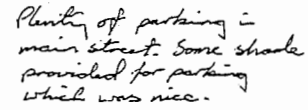 Plenty of parking in
main street. Some shade
provided for parking
which was nice.